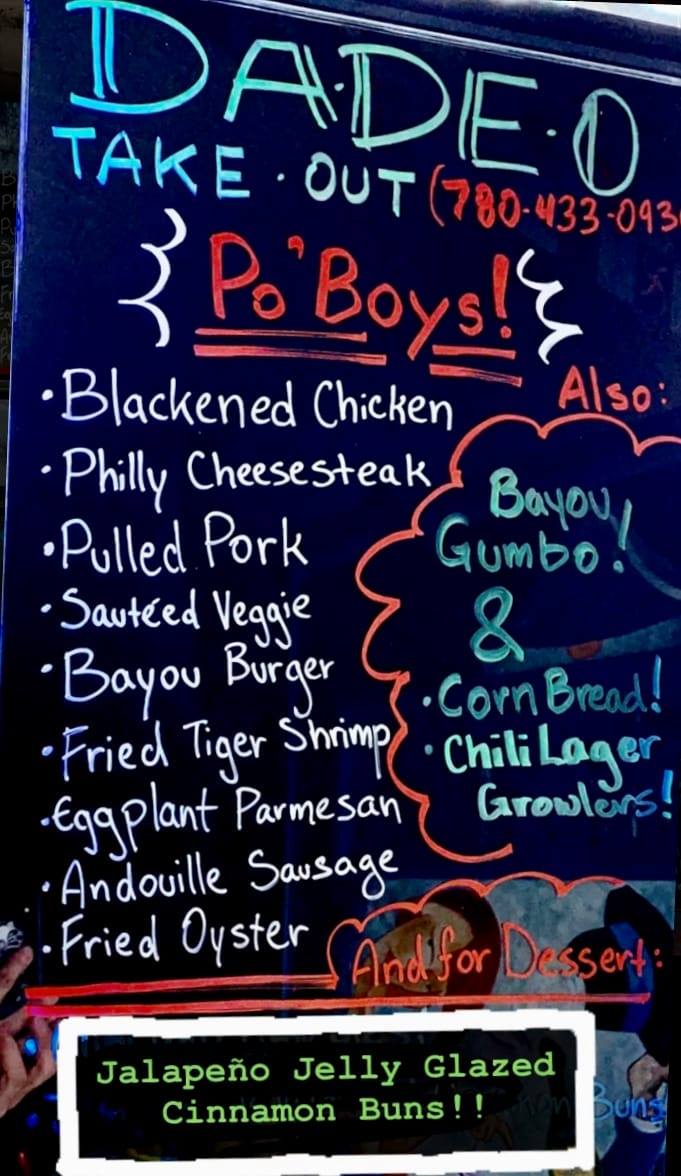 DA·DE·O
TAKE·OUT (780-433-093
Po'Boys!
· Blackened Chicken
· Philly Cheesesteak
· Pulled Pork
· Sautéed Veggie
· Bayou Burger
· Fried Tiger Shrimp
· Eggplant Parmesan
· Andouille Sausage
· Fried Oyster
Also:
Bayou
Gumbo!
&
· Corn Bread!
· Chili Lager
Growlers!
And for Dessert:
Jalapeño Jelly Glazed
Cinnamon Buns!!
Buns